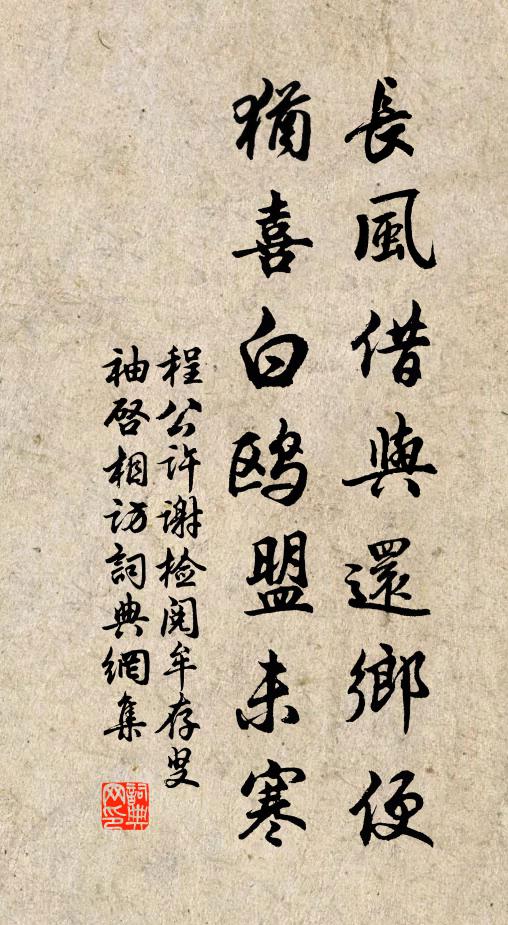 長風借與還鄉便
猶喜白鷗盟未寒
程公許谢检閱牟存叟
袖启相访詞典網集
詞典网印